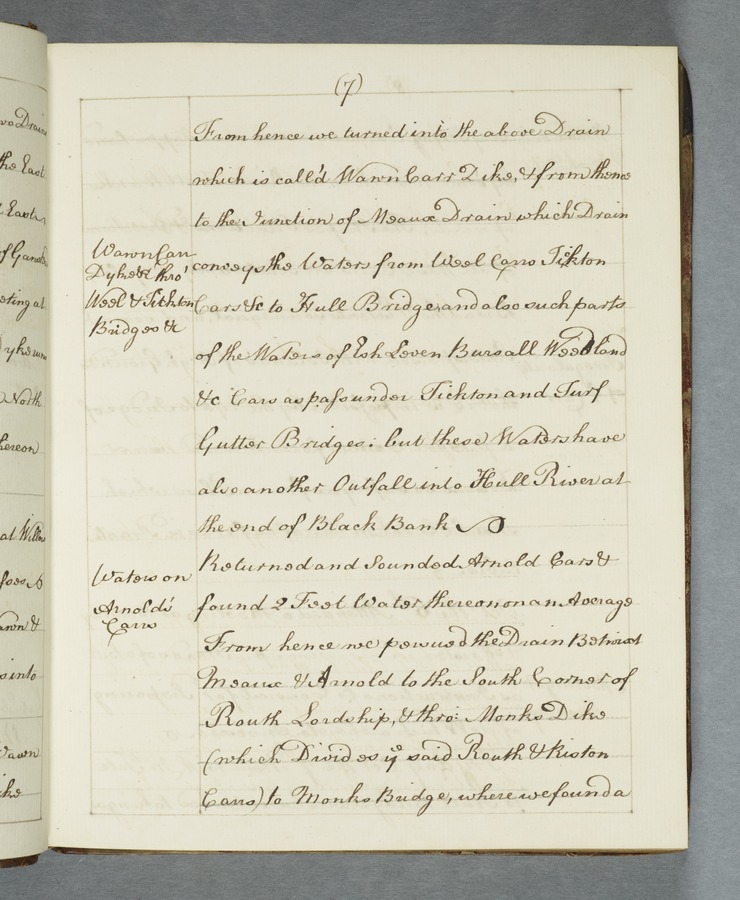 (7)
From hence we turned into the above Drain
which is call'd Wawn Carr Dike, & from thence
to the Junction of Meaux Drain which Drain
conveys the Waters from Weel Carrs Tickton
Cars &c to Hull Bridge, and also such parts
of the Waters of Esk Leven Bursall Weedland
&c Cars as pass under Tickton and Turf
Gutter Bridges: but these Waters have
also another Outfall into Hull River at
the end of Black Bank
Returned and Sounded Arnold Cars &
found 2 Feet Water thereon on an Average
From hence we persued the Drain Betwixt
Meaux & Arnold to the South Corner of
Routh Lordship, & thro: Monks Dike
(which Divides ye said Routh & Riston
Carrs) to Monks Bridge, where we found a
Wawn Carr
Dyke & thro'
Weel & Tickton
Bridges &c
Waters on
Arnold's
Carrs
Drain
the East
East
of
eting at
Dyke
North
hereon
at
into
Wawn